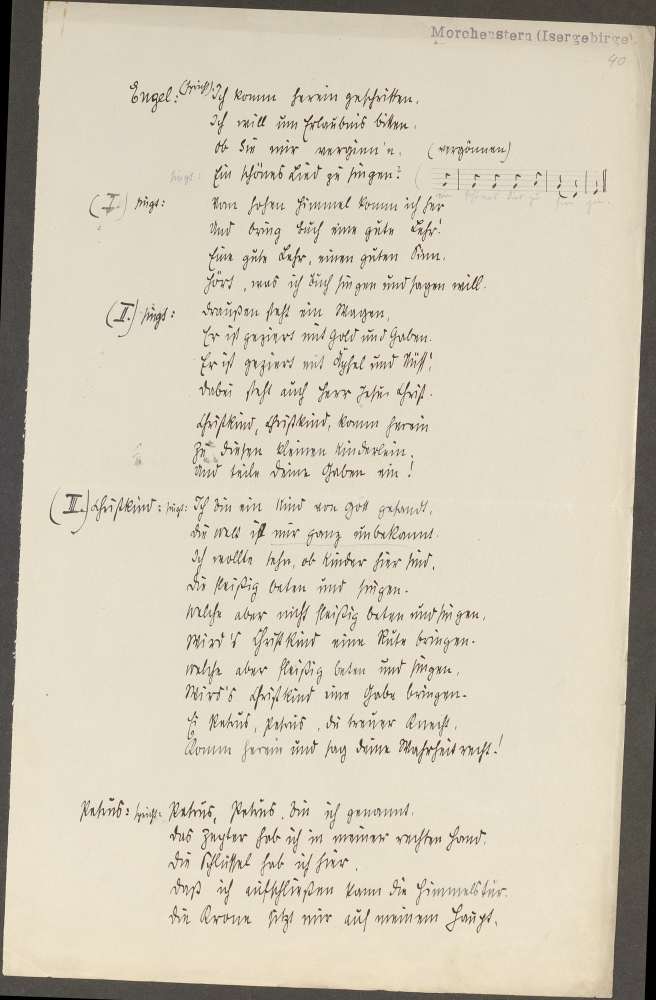 Morchenstern (Isergebirge).
40
Engel: (spricht): Ich komm herein geschritten.
Ich will um Erlaubnis bitten.
Ob Sie mir verginn'n. (vergönnen)
singt: Ein schönes Lied zu singen?
(I.) singt: Vom hohen Himmel komm ich her
Und bring Euch eine gute Lehr!
Eine gute Lehr, einen guten Sinn.
Hört, was ich Euch singen und sagen will.
(II.) singt: Draußen steht ein Wagen,
Er ist geziert mit Gold und Gaben.
Er ist geziert mit Äpfel und Nüss'!
Dabei steht auch Herr Jesu Christ.
Christkind, Christkind, komm herein
Zu diesen kleinen Kinderlein.
Und teile Deine Gaben ein!
(III.) Christkind: singt: Ich bin ein Kind von Gott gesandt,
Die Welt ist mir ganz unbekannt.
Ich wollte sehn, ob Kinder hier sind,
Die fleißig beten und singen.
Welche aber nicht fleißig beten und singen,
Wird's Christkind eine Rute bringen.
Welche aber fleißig beten und singen,
Wird's Christkind eine Gabe bringen.
Ei Petrus, Petrus, du treuer Knecht,
Komm herein und sag deine Wahrheit recht!
Petrus: spricht: Petrus, Petrus, bin ich genannt.
Das Zepter hab ich in meiner rechten Hand.
Die Schlüssel hab ich hier,
Daß ich aufschließen kann die Himmelstür.
Die Krone sitzt mir auf meinem Haupt,